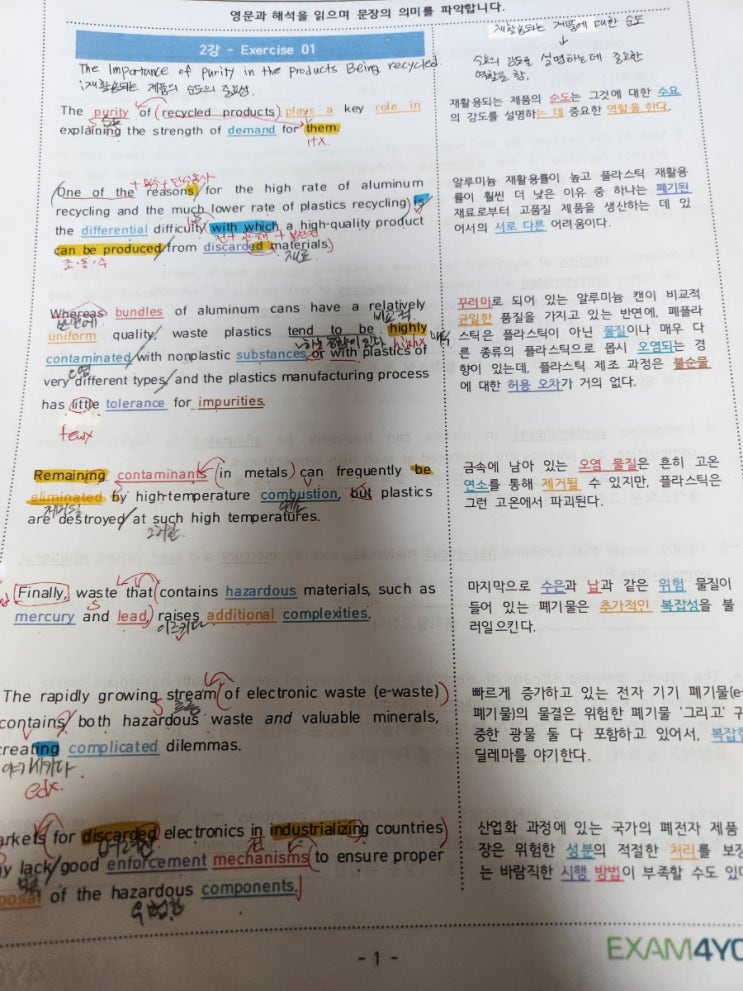 영문과 해석을 읽으며 문장의 의미를 파악합니다.
2강 - Exercise 01
The Importance of Purity in the Products Being recycled.
: 재활용되는 제품의 순도의 중요성.
재활용되는 제품에 대한 순도
↓
수요의 강도를 설명하는데 중요한
역할을 함.
The purity of (recycled products) plays a key role in
순도
explaining the strength of demand for them.
itx.
재활용되는 제품의 순도는 그것에 대한 수요
의 강도를 설명하는 데 중요한 역할을 한다.
+ 복수 + 단수동사
One of the reasons, for the high rate of aluminum
recycling and the much lower rate of plastics recycling is
the differential difficulty with which a high-quality product
can be produced from discarded materials.
조·동·수
재료
알루미늄 재활용률이 높고 플라스틱 재활용
률이 훨씬 더 낮은 이유 중 하나는 폐기된
재료로부터 고품질 제품을 생산하는 데 있
어서의 서로 다른 어려움이다.
Whereas bundles of aluminum cans have a relatively
반면에
비교적
uniform quality, waste plastics tend to be highly
highx
contaminated with nonplastic substances or with plastics of
오염
very different types, and the plastics manufacturing process
has little tolerance for impurities.
fewx
꾸러미로 되어 있는 알루미늄 캔이 비교적
균일한 품질을 가지고 있는 반면에, 폐플라
스틱은 플라스틱이 아닌 물질이나 매우 다
른 종류의 플라스틱으로 몹시 오염되는 경
향이 있는데, 플라스틱 제조 과정은 불순물
에 대한 허용 오차가 거의 없다.
Remaining contaminants (in metals) can frequently be
eliminated by high-temperature combustion, but plastics
제거될
연소
are destroyed at such high temperatures.
그러한
금속에 남아 있는 오염 물질은 흔히 고온
연소를 통해 제거될 수 있지만, 플라스틱은
그런 고온에서 파괴된다.
Finally, waste that (contains hazardous materials, such as
mercury and lead) raises additional complexities.
일으키다
마지막으로 수은과 납과 같은 위험 물질이
들어 있는 폐기물은 추가적인 복잡성을 불
러일으킨다.
The rapidly growing stream (of electronic waste (e-waste))
contains both hazardous waste and valuable minerals,
creating complicated dilemmas.
야기시키다.
edx.
빠르게 증가하고 있는 전자 기기 폐기물(e-
폐기물)의 물결은 위험한 폐기물 '그리고' 구
중한 광물 둘 다 포함하고 있어서, 복잡한
딜레마를 야기한다.
arkets for discarded electronics in industrializing countries)
y lack good enforcement mechanisms (to ensure proper
부족
posal of the hazardous components.
위험한
산업화 과정에 있는 국가의 폐전자 제품
장은 위험한 성분의 적절한 처리를 보장
는 바람직한 시행 방법이 부족할 수도 있다
- 1 -
EXAM4YO